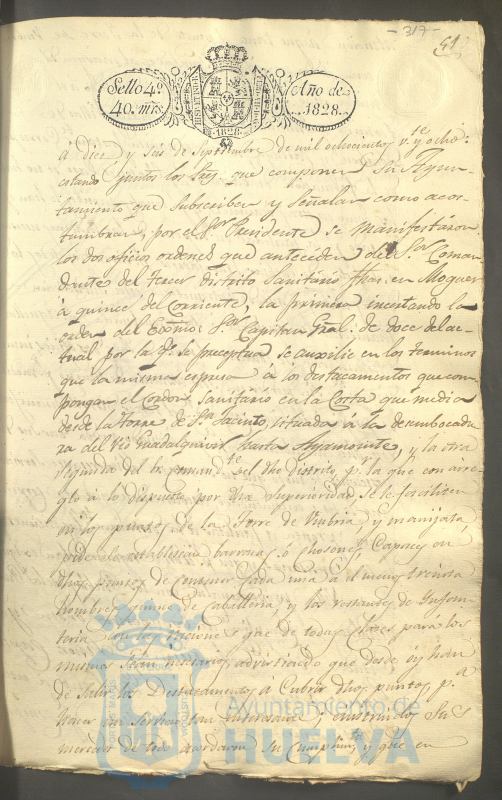 - 317 -
51
Sello 4º
40. mrs.
Año de
1828.
1828
á diez y seis de Septiembre de mil ochocientos vte y ocho:
estando juntos los Sres. que componen su Ayun-
tamiento que subscriben y señalan como acos-
tumbran, por el Sor Presidente se manifestáron
los dos oficios ordenes que anteceden del Sor Coman-
dante del tercer distrito Sanitario fhas. en Moguer
á quince del Corriente, la primera incertando la
orden del Exmo. Sor Capitan Gral. de doce del ac-
tual por la q. se preceptua se auxilie en los terminos
que la misma espresa á los destacamentos que com-
pongan el Cordon Sanitario en la Costa que media
desde la torre de Sn Jacinto, situada á la desembocadu-
ra del Rio Guadalquivir hasta Ayamonte, y la otra
segunda del Comandte del dho Distrito, pr la que con arre-
glo á lo dispuesto por dha Superioridad se le faciliten
en los puntos de la Torre de Umbria y manijata
barracas ó chosones Capaces en
dhos puntos de Contener Cada una á el menos treinta
hombres quince de Caballeria, y los restantes de Infan-
teria con las que de todas Clases para los
mismos sean necesarios, advirtiendo que desde oy han
de Salir los Destacamentos á Cubrir dhos puntos pa
hacer un Servicio tan interesante, y enterados Sus
mercedes de todo acordaron su Cumplimto y que en
Ayuntamiento de
HUELVA